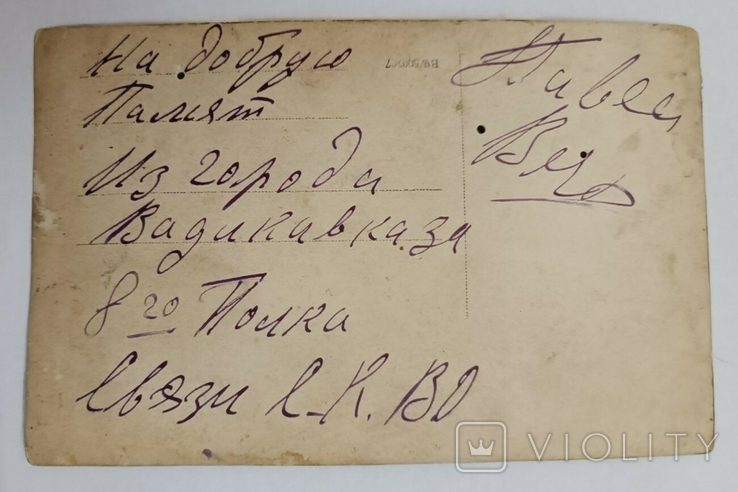 На добрую
Памят
Из города
Вадикавказа
8го Полка
Связи С.К.ВО
Павел
VIOLITY